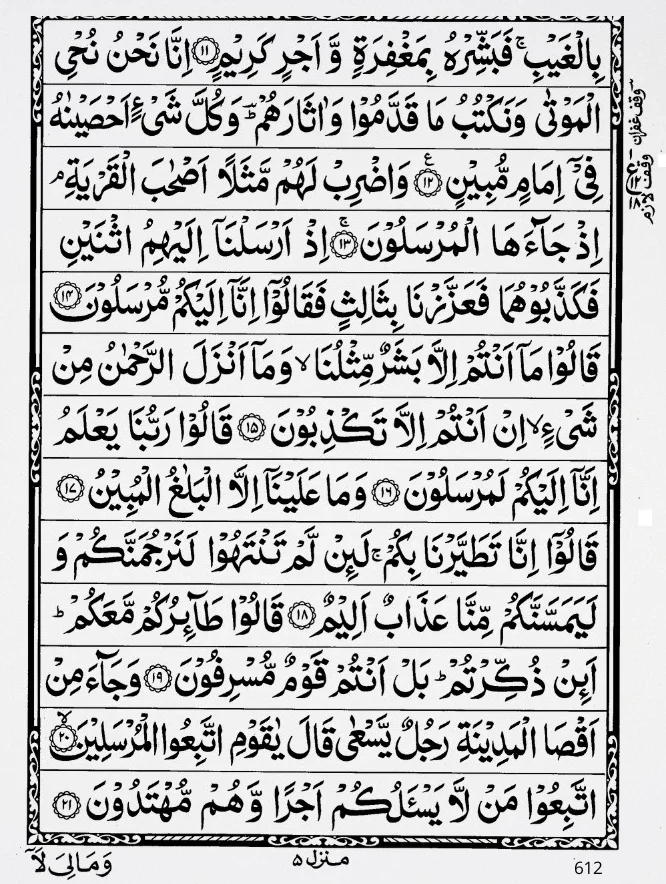 بِالْغَيْبِ ۚ فَبَشِّرْهُ بِمَغْفِرَةٍ وَّ اَجْرٍ كَرِيْمٍ ۝۱۱ اِنَّا نَحْنُ نُحْیِ
الْمَوْتٰی وَنَكْتُبُ مَا قَدَّمُوْا وَاٰثَارَهُمْ ؕ وَكُلَّ شَیْءٍ اَحْصَیْنٰهُ
فِیْۤ اِمَامٍ مُّبِیْنٍ ۝۱۲ ع وَاضْرِبْ لَهُمْ مَّثَلًا اَصْحٰبَ الْقَرْیَةِ ۘ
اِذْ جَآءَهَا الْمُرْسَلُوْنَ ۝۱۳ ۚ اِذْ اَرْسَلْنَاۤ اِلَیْهِمُ اثْنَیْنِ
فَكَذَّبُوْهُمَا فَعَزَّزْنَا بِثَالِثٍ فَقَالُوْۤا اِنَّاۤ اِلَیْكُمْ مُّرْسَلُوْنَ ۝۱۴
قَالُوْا مَاۤ اَنْتُمْ اِلَّا بَشَرٌ مِّثْلُنَا ۙ وَمَاۤ اَنْزَلَ الرَّحْمٰنُ مِنْ
شَیْءٍ ۙ اِنْ اَنْتُمْ اِلَّا تَكْذِبُوْنَ ۝۱۵ قَالُوْا رَبُّنَا یَعْلَمُ
اِنَّاۤ اِلَیْكُمْ لَمُرْسَلُوْنَ ۝۱۶ وَمَا عَلَیْنَاۤ اِلَّا الْبَلٰغُ الْمُبِیْنُ ۝۱۷
قَالُوْۤا اِنَّا تَطَیَّرْنَا بِكُمْ ۚ لَىِٕنْ لَّمْ تَنْتَهُوْا لَنَرْجُمَنَّكُمْ وَ
لَیَمَسَّنَّكُمْ مِّنَّا عَذَابٌ اَلِیْمٌ ۝۱۸ قَالُوْا طَآىِٕرُكُمْ مَّعَكُمْ ؕ
اَىِٕنْ ذُكِّرْتُمْ ؕ بَلْ اَنْتُمْ قَوْمٌ مُّسْرِفُوْنَ ۝۱۹ وَجَآءَ مِنْ
اَقْصَا الْمَدِیْنَةِ رَجُلٌ یَّسْعٰی قَالَ یٰقَوْمِ اتَّبِعُوا الْمُرْسَلِیْنَ ۝۲۰ ۙ
اتَّبِعُوْا مَنْ لَّا یَسْـَٔلُكُمْ اَجْرًا وَّهُمْ مُّهْتَدُوْنَ ۝۲۱
وقف غفران
وقف لازم
ع ۱۲ ۱۸
وَمَالِیَ لَاۤ
منزل ۵
612